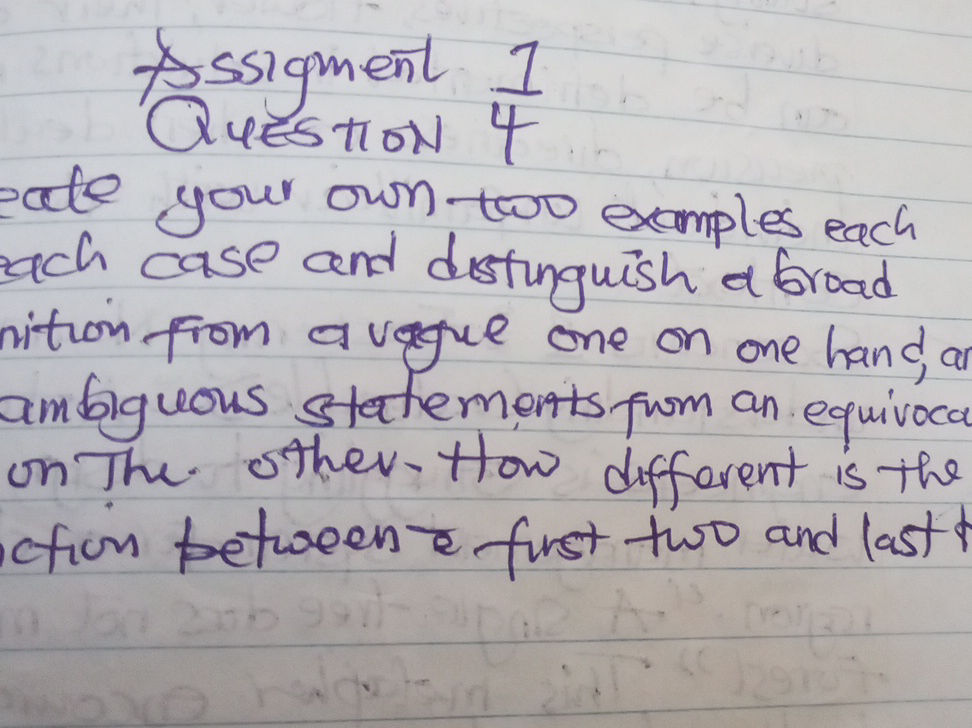 Assigment 1
QUESTION 4
eate your own two examples each
each case and distinguish a broad
nition from a vague one on one hand, an
ambiguous statements from an equivoca
on The other. How different is the
ction between first two and last t